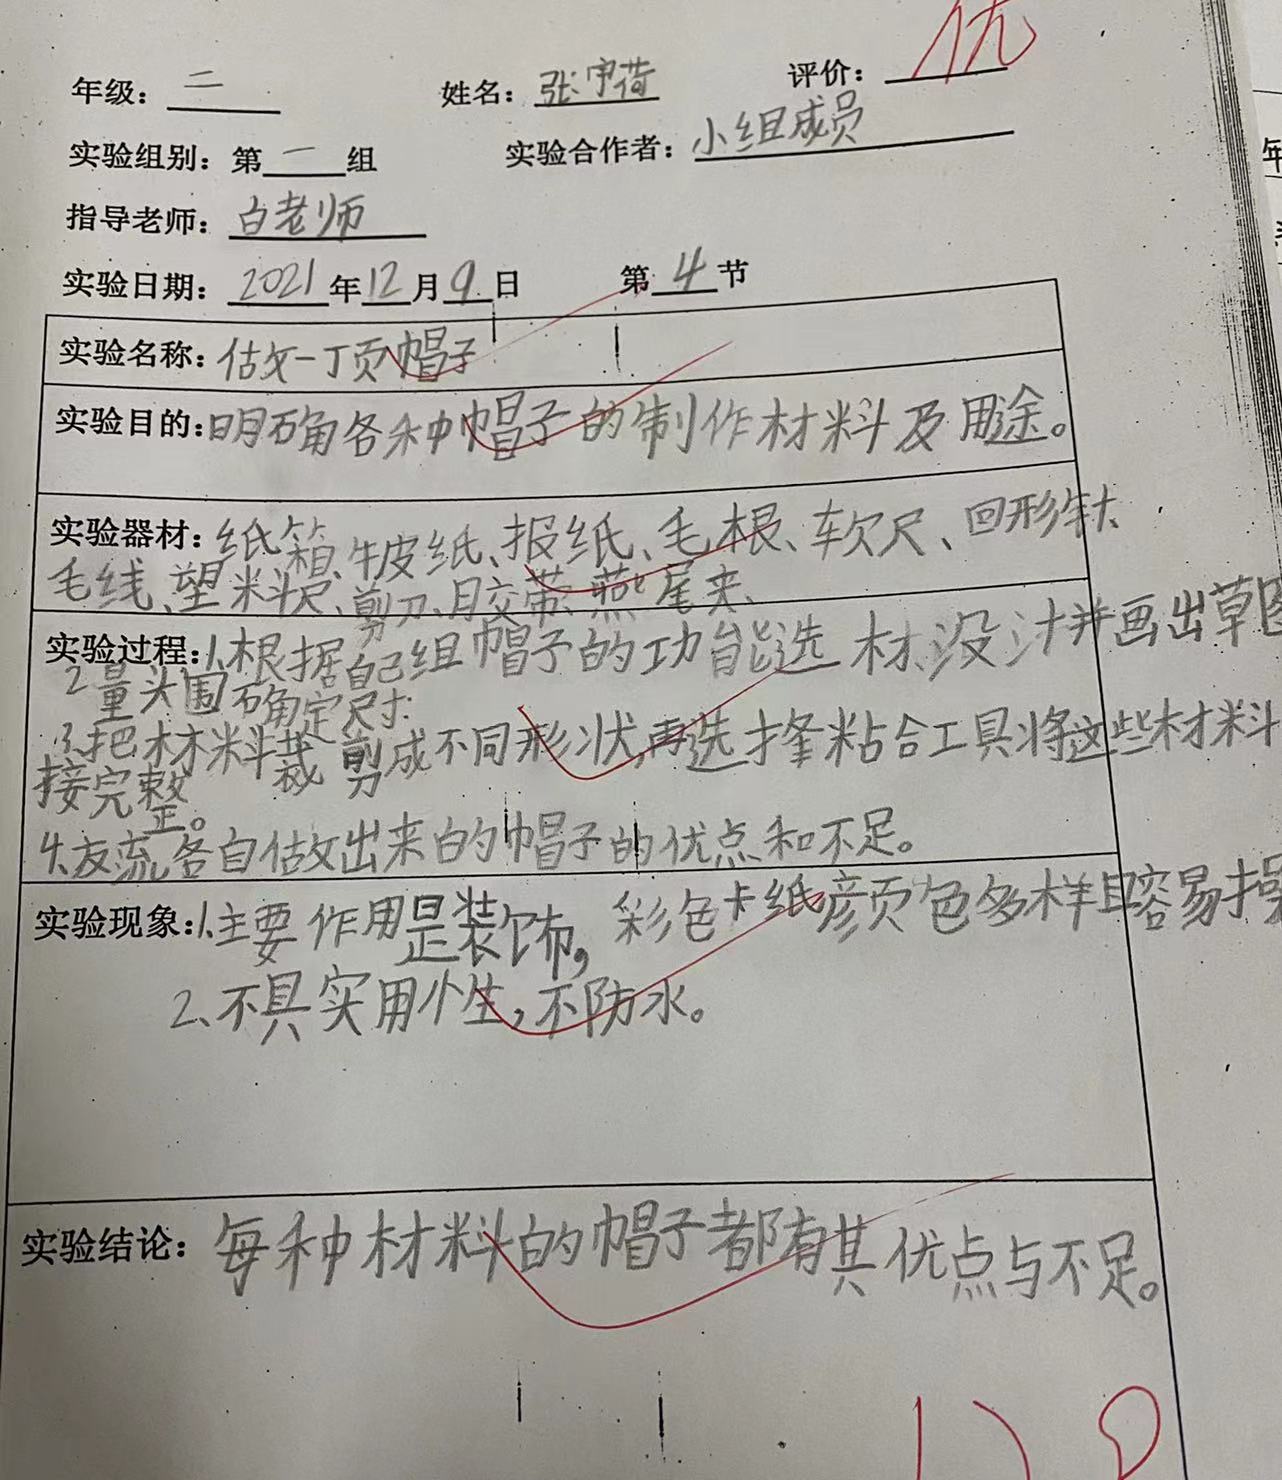 年级：二 姓名：张宇荷 评价：优
实验组别：第一组 实验合作者：小组成员
指导老师：白老师
实验日期：2021年12月9日 第4节
实验名称：做一顶帽子
实验目的：明确各种帽子的制作材料及用途。
实验器材：纸箱、牛皮纸、报纸、毛根、软尺、回形针
毛线、塑料尺、剪刀、胶带、燕尾夹、
实验过程：1、根据自己组帽子的功能选材、设计并画出草图
2量头围确定尺寸.
3、把材料裁剪成不同形状，再选择粘合工具将这些材料
接完整。
4、交流各自做出来的帽子的优点和不足。
实验现象：1、主要作用是装饰，彩色卡纸颜色多样且容易操
2、不具实用性，不防水。
实验结论：每种材料的帽子都有其优点与不足。